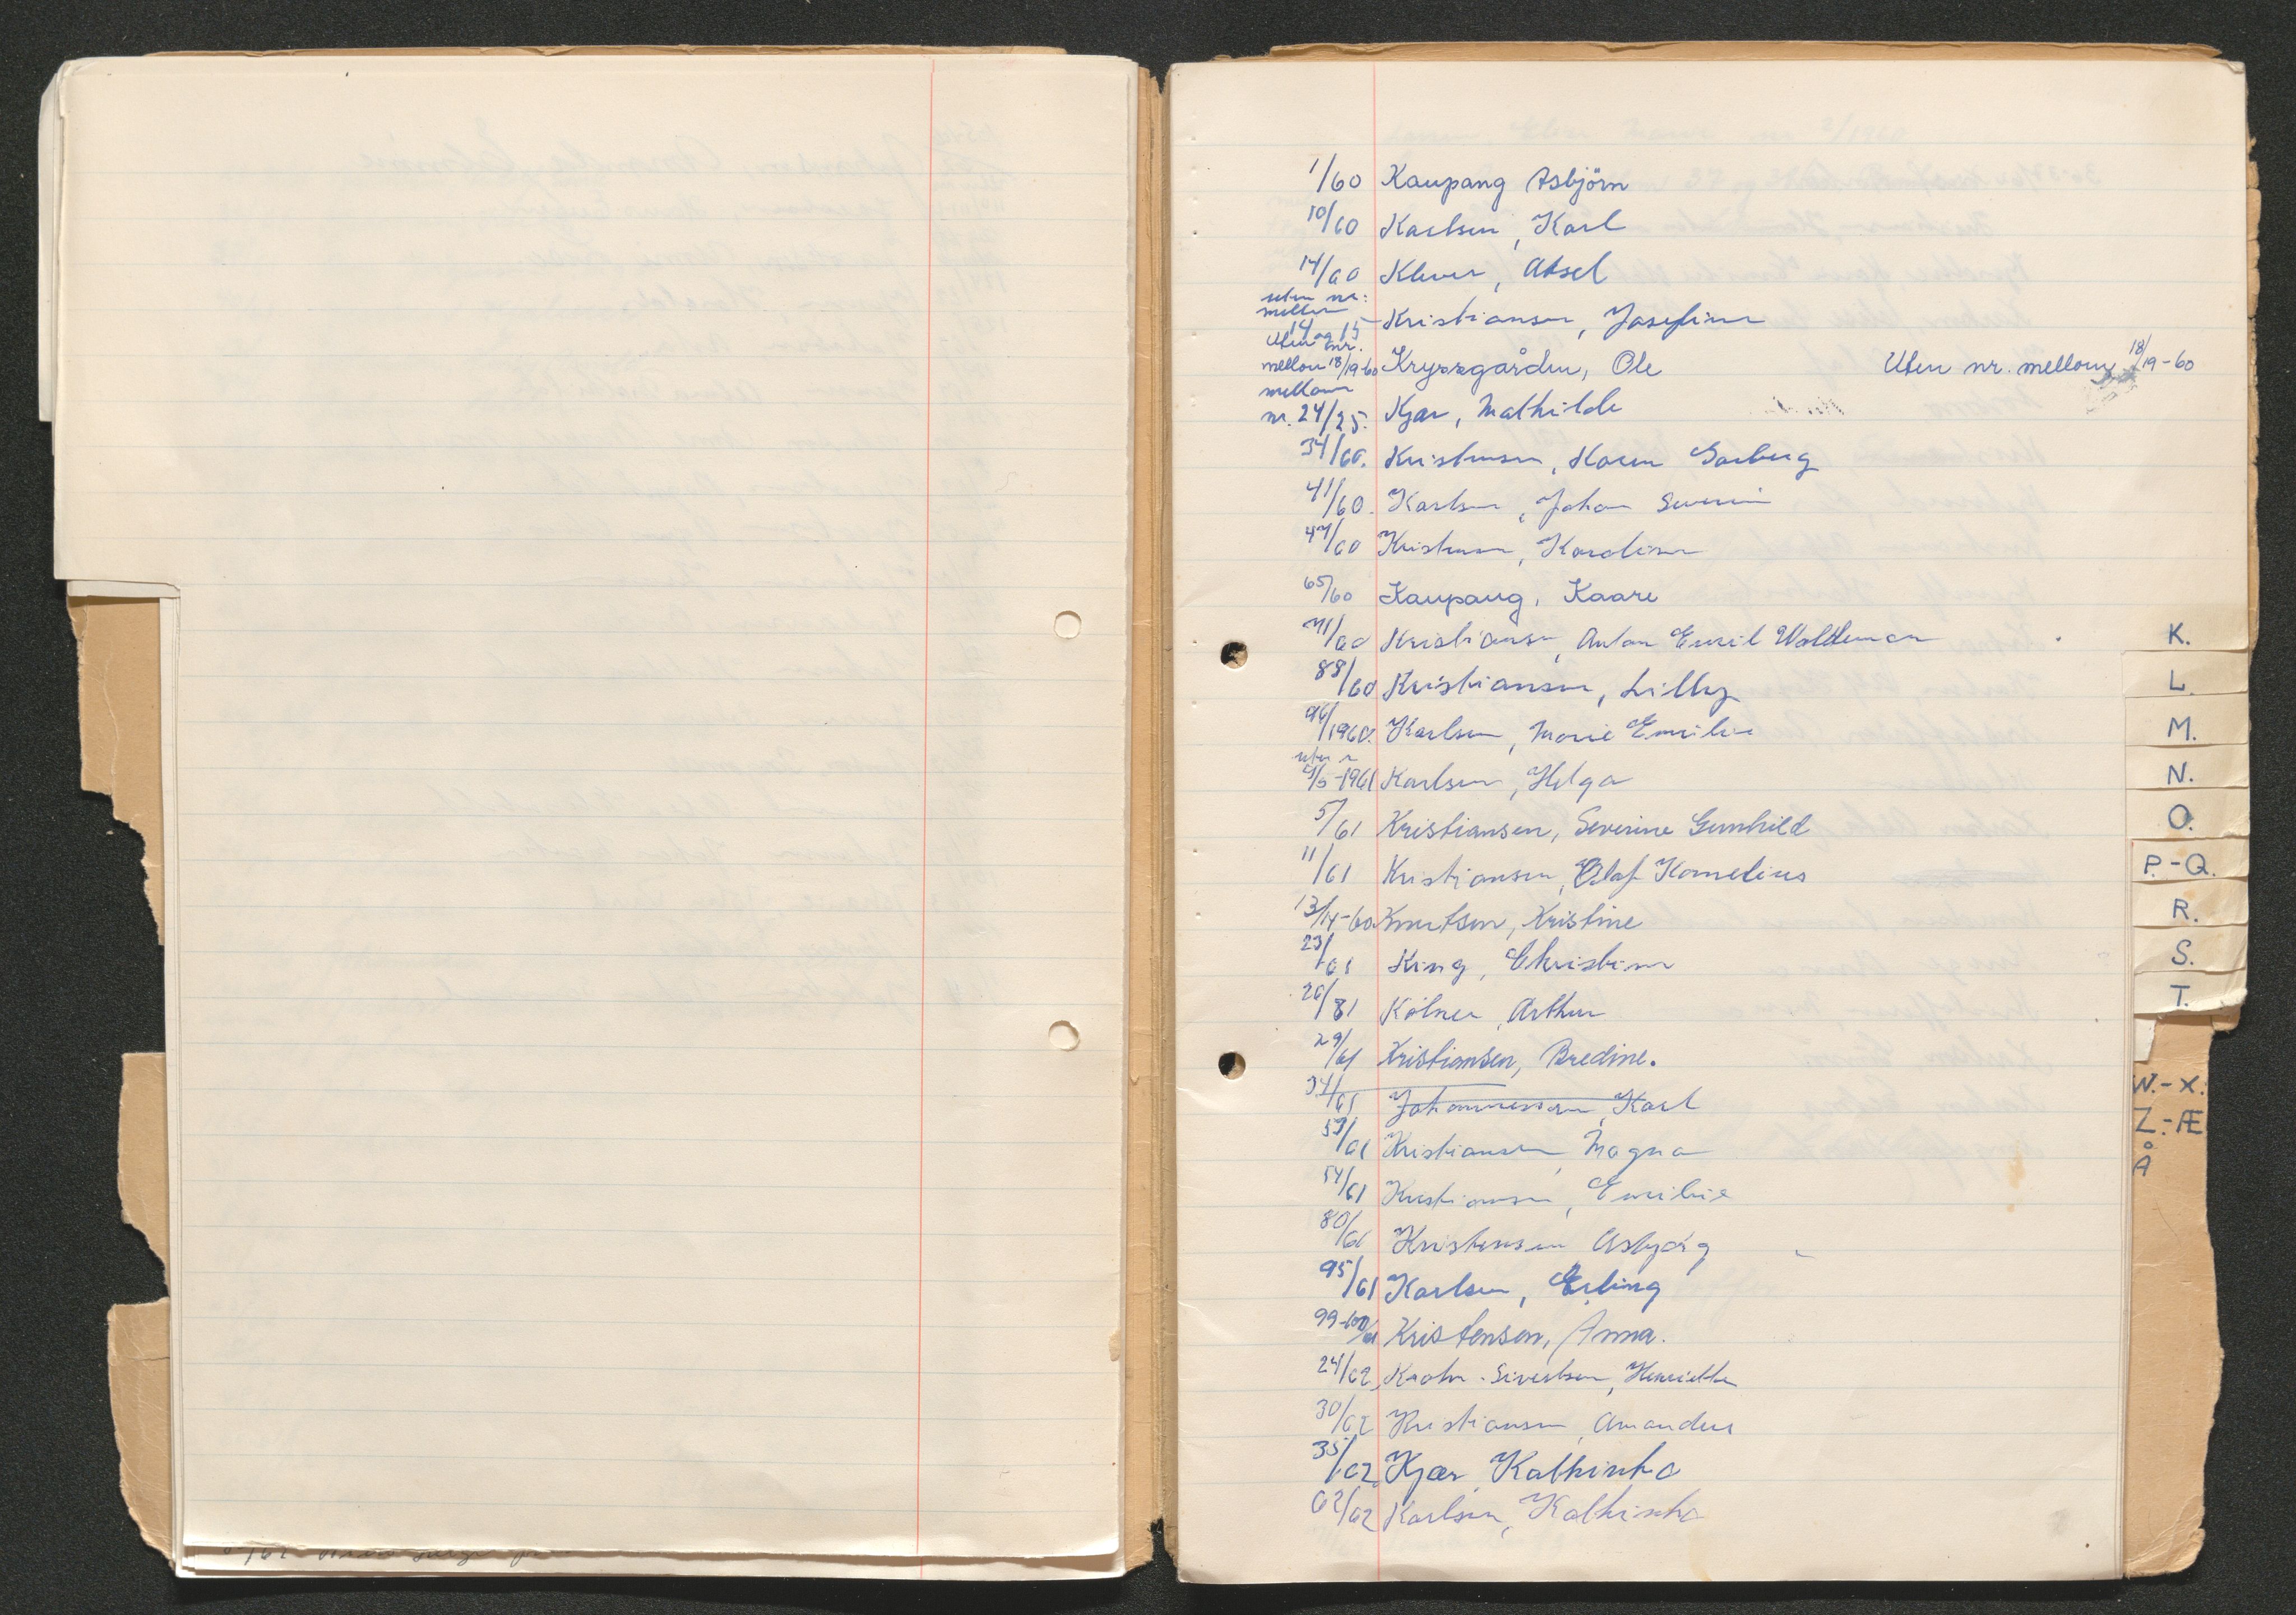 1/60 Kaupang Asbjörn
10/60 Karlsen, Karl
14/60 Klever, Aksel
uten nr: mellem 14 og 15 Kristiansen, Josefine
Uten nr. mellom 18/19-60 Kryssgården, Ole Uten nr. mellom 18/19-60
mellom nr. 24/25. Kjær, Mathilde
34/60. Kristensen, Karen Garberg
41/60. Karlsen, Johan Severin
47/60 Kristensen, Karoline
65/60 Kaupang, Kaare
71/60 Kristiansen, Anton Emil Waldemar
88/60 Kristiansen, Lilly
96/1960. Karlsen, Marie Emilie
4/5-1961 Karlsen, Helga
5/61 Kristiansen, Severine Gunhild
11/61 Kristiansen, Olaf Kornelius
13/14-60 Knutsen, Kristine
23/61 King, Christine
26/81 Kölner, Arthur
29/61 Kristiansen, Bredine.
34/61 Johannessen, Karl
53/61 Kristiansen, Magna
54/61 Kristiansen, Emilie
80/61 Kristensen Asbjørg
95/61 Karlsen, Erling
99-100/61 Kristensen, Anna.
24/62, Krohn-Sivertsen, Henriette
30/62 Kristiansen, Amandus
35/62. Kjær, Kathinka
62/62 Karlsen, Kathinka
K.
L.
M.
N.
O.
P.-Q.
R.
S.
T.
W.-X.
Z.-Æ
Å